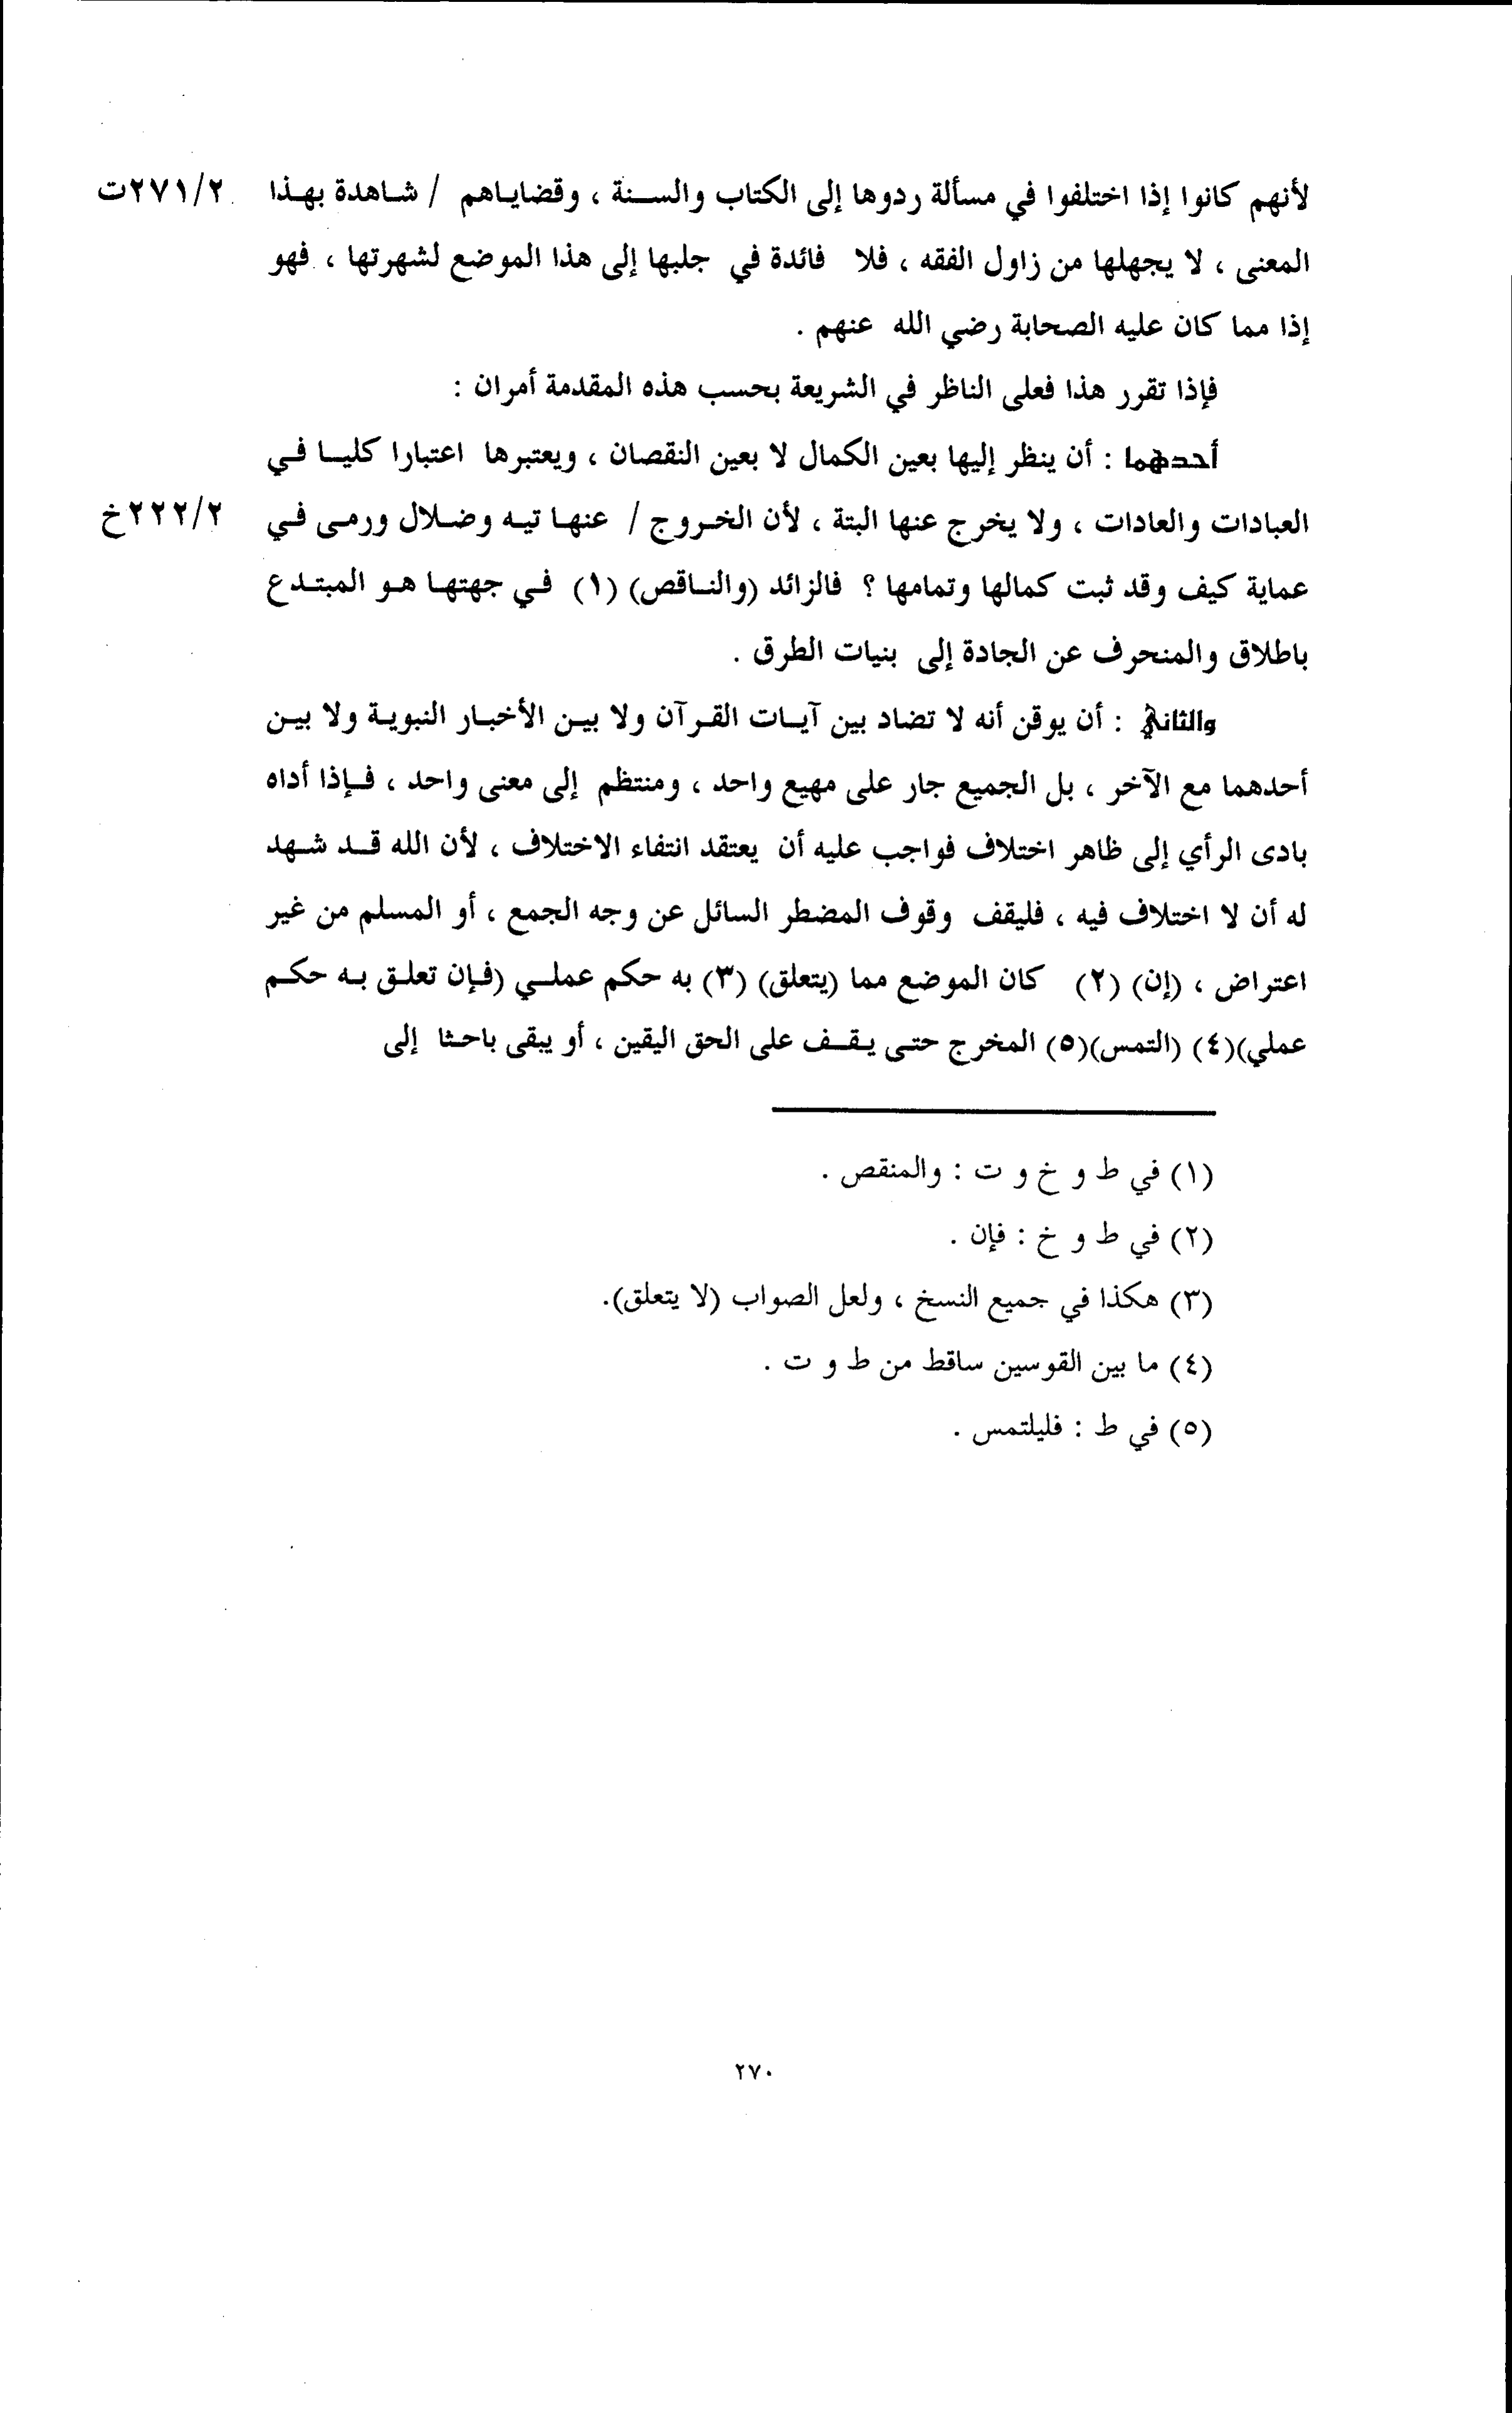 لأنهم كانوا إذا اختلفوا في مسألة ردوها إلى الكتاب والسنة ، وقضاياهم / شاهدة بهذا ٢٧١/٢ت
المعنى ، لا يجهلها من زاول الفقه ، فلا فائدة في جلبها إلى هذا الموضع لشهرتها ، فهو
إذا مما كان عليه الصحابة رضي الله عنهم .
فإذا تقرر هذا فعلى الناظر في الشريعة بحسب هذه المقدمة أمران :
أحدهما : أن ينظر إليها بعين الكمال لا بعين النقصان ، ويعتبرها اعتبارا كليا في
العبادات والعادات ، ولا يخرج عنها البتة ، لأن الخروج / عنها تيه وضلال ورمى في ٢٢٢/٢خ
عماية كيف وقد ثبت كمالها وتمامها ؟ فالزائد (والناقص) (١) في جهتها هو المبتدع
باطلاق والمنحرف عن الجادة إلى بنيات الطرق .
والثاني : أن يوقن أنه لا تضاد بين آيات القرآن ولا بين الأخبار النبوية ولا بين
أحدهما مع الآخر ، بل الجميع جار على مهيع واحد ، ومنتظم إلى معنى واحد ، فإذا أداه
بادى الرأي إلى ظاهر اختلاف فواجب عليه أن يعتقد انتفاء الاختلاف ، لأن الله قد شهد
له أن لا اختلاف فيه ، فليقف وقوف المضطر السائل عن وجه الجمع ، أو المسلم من غير
اعتراض ، (إن) (٢) كان الموضع مما (يتعلق) (٣) به حكم عملي (فإن تعلق به حكم
عملي)(٤) (التمس)(٥) المخرج حتى يقف على الحق اليقين ، أو يبقى باحثا إلى
(١) في ط و خ و ت : والمنقص .
(٢) في ط و خ : فإن .
(٣) هكذا في جميع النسخ ، ولعل الصواب (لا يتعلق).
(٤) ما بين القوسين ساقط من ط و ت .
(٥) في ط : فليلتمس .
٢٧٠